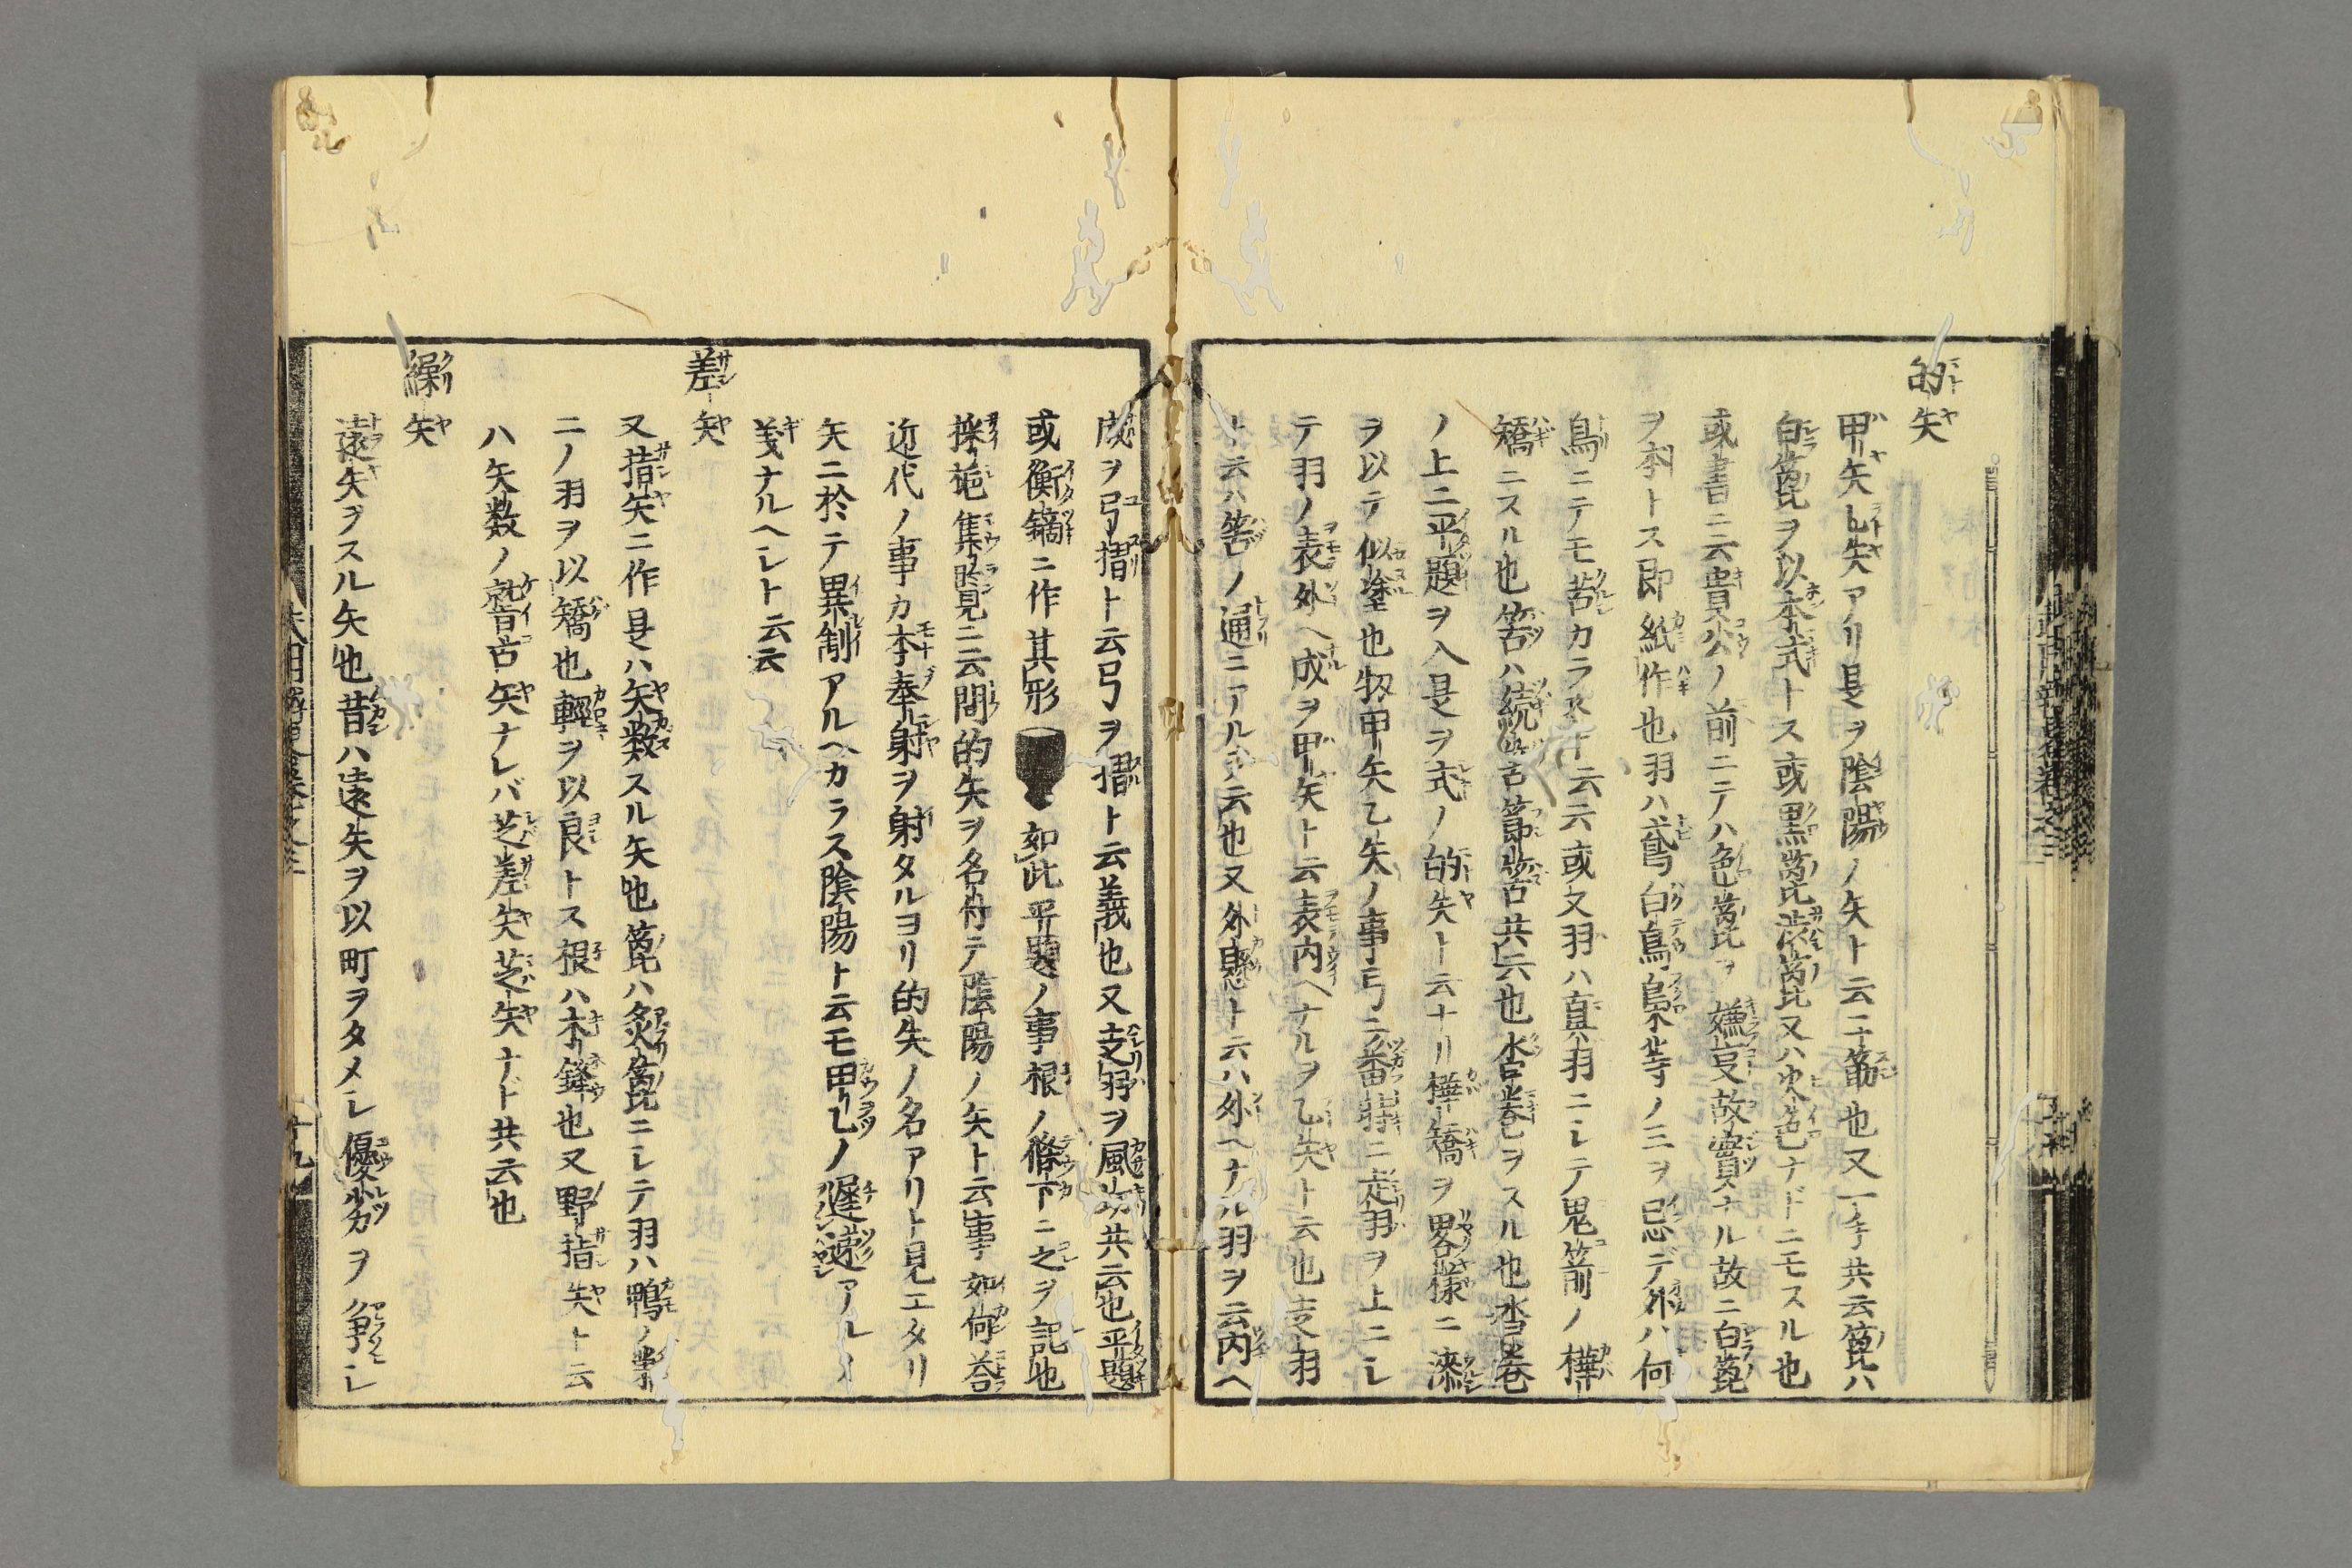 的矢
甲矢乙矢アリ是ヲ陰陽ノ矢ト云二筋也又一手共云箆ハ
白箆ヲ以本式トス或黒箆渋箆又ハ火色ナドニモスル也
或書ニ云貴公ノ前ニテハ色箆ヲ嫌亘故實ナル故ニ白箆
ヲ本トス即紙作也羽ハ鳶白鳥梟等ノ三ヲ忌デ外ハ何
鳥ニテモ苦カラスト云云或文羽ハ真羽ニレテ鬼箭ノ樺
矯ニスル也筈ハ続筈節筈共云也沓巻ヲスル也沓巻
ノ上ニ平題ヲ入是ヲ式ノ的矢ト云ナリ樺矯ヲ畧様ニ漆
ヲ以テ似塗也扨甲矢乙矢ノ事弓ニ番時ニ走羽ヲ上ニレ
テ羽ノ表外ヘ成ヲ甲矢ト云表内ヘナルヲ乙矢ト云也走羽
ト云ハ筈ノ通ニアル羽ヲ云也又外懸ト云ハ外ヘナル羽ヲ云内ヘ
成ヲ弓摺ト云弓ヲ摺ト云義也又走羽ヲ風切共云也平題
或衡鏑ニ作其形如此平題ノ事根ノ條下ニ之ヲ記也
採葩集覧ニ云間的矢ヲ名付テ陰陽ノ矢ト云事如何荅
近代ノ事カ本奉射ヲ射タルヨリ的矢ノ名アリト見エタリ
矢ニ於テ異制アルヘカラス陰陽ト云モ甲乙ノ遅速アル
義ナルヘレト云云
差矢
又指矢ニ作是ハ矢数スル矢也箆ハ炙箆ニレテ羽ハ鴨ノ
ニノ羽ヲ以矯也輕ヲ以良トス根ハ木鋒也又野指矢ト云
ハ矢数ノ稽古矢ナレバ芝差矢芝矢ナド共云也
繰矢
遠矢ヲスル矢也昔ハ遠矢ヲ以町ヲタメレ優劣ヲ争レ
十九